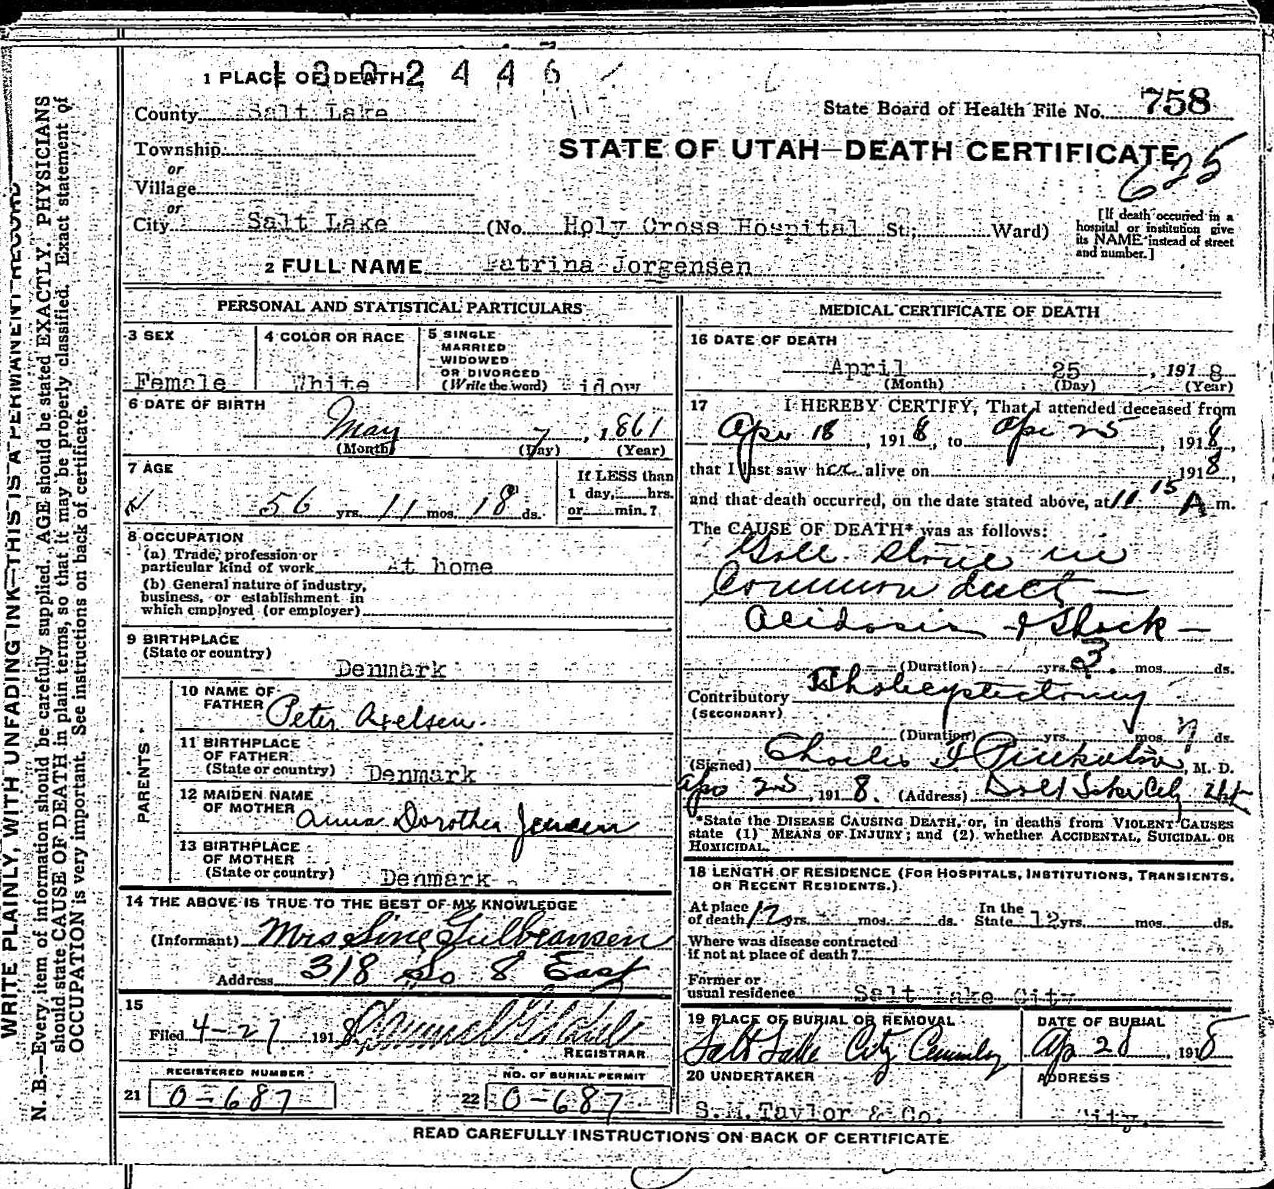 1302446
1 PLACE OF DEATH
County Salt Lake
State Board of Health File No. 758
Township
STATE OF UTAH—DEATH CERTIFICATE
625
or
Village
or
City Salt Lake (No. Holy Cross Hospital St; Ward)
[If death occurred in a hospital or institution give its NAME instead of street and number.]
2 FULL NAME Patrina Jorgensen
PERSONAL AND STATISTICAL PARTICULARS
3 SEX
Female
4 COLOR OR RACE
White
5 SINGLE
MARRIED
WIDOWED
OR DIVORCED
(Write the word) idow
6 DATE OF BIRTH
May 7, 1861
(Month) (Day) (Year)
7 AGE
56 yrs. 11 mos. 18 ds.
If LESS than
1 day, hrs.
or min.?
8 OCCUPATION
(a) Trade, profession or
particular kind of work At home
(b) General nature of industry,
business, or establishment in
which employed (or employer)
9 BIRTHPLACE
(State or country)
Denmark
PARENTS
10 NAME OF
FATHER Peter Axelsen
11 BIRTHPLACE
OF FATHER
(State or country) Denmark
12 MAIDEN NAME
OF MOTHER Anna Dorothea Jensen
13 BIRTHPLACE
OF MOTHER
(State or country) Denmark
14 THE ABOVE IS TRUE TO THE BEST OF MY KNOWLEDGE
(Informant) Mrs Sine Gulbransen
Address 318 So 8 East
15
Filed 4-27 1918
REGISTRAR
REGISTERED NUMBER
21 0-687
NO. OF BURIAL PERMIT
22 0-687
MEDICAL CERTIFICATE OF DEATH
16 DATE OF DEATH
April 25, 1918
(Month) (Day) (Year)
17 I HEREBY CERTIFY, That I attended deceased from
Apr 18, 1918, to Apr 25, 1918,
that I last saw her alive on 1918,
and that death occurred, on the date stated above, at 11 15 A m.
The CAUSE OF DEATH* was as follows:
Gall stone in
Common duct —
Acidosis & Shock —
(Duration) yrs. 3 mos. ds.
Contributory Cholecystectomy
(SECONDARY)
(Duration) yrs. mos. 7 ds.
(Signed) Charles F Pinkerton, M. D.
Apr 25, 1918. (Address) Salt Lake City Ut
*State the DISEASE CAUSING DEATH, or, in deaths from VIOLENT CAUSES
state (1) MEANS OF INJURY; and (2) whether ACCIDENTAL, SUICIDAL OR
HOMICIDAL.
18 LENGTH OF RESIDENCE (FOR HOSPITALS, INSTITUTIONS, TRANSIENTS,
OR RECENT RESIDENTS.)
At place
of death 12 yrs. mos. ds.
In the
State 12 yrs. mos. ds.
Where was disease contracted
if not at place of death?
Former or
usual residence Salt Lake City
19 PLACE OF BURIAL OR REMOVAL
Salt Lake City Cemetery
DATE OF BURIAL
Ap 28, 1918
20 UNDERTAKER
S.M.Taylor & Co.
ADDRESS
City.
READ CAREFULLY INSTRUCTIONS ON BACK OF CERTIFICATE
WRITE PLAINLY, WITH UNFADING INK—THIS IS A PERMANENT RECORD
N. B.—Every item of information should be carefully supplied. AGE should be stated EXACTLY. PHYSICIANS
should state CAUSE OF DEATH in plain terms, so that it may be properly classified. Exact statement of
OCCUPATION is very important. See instructions on back of certificate.